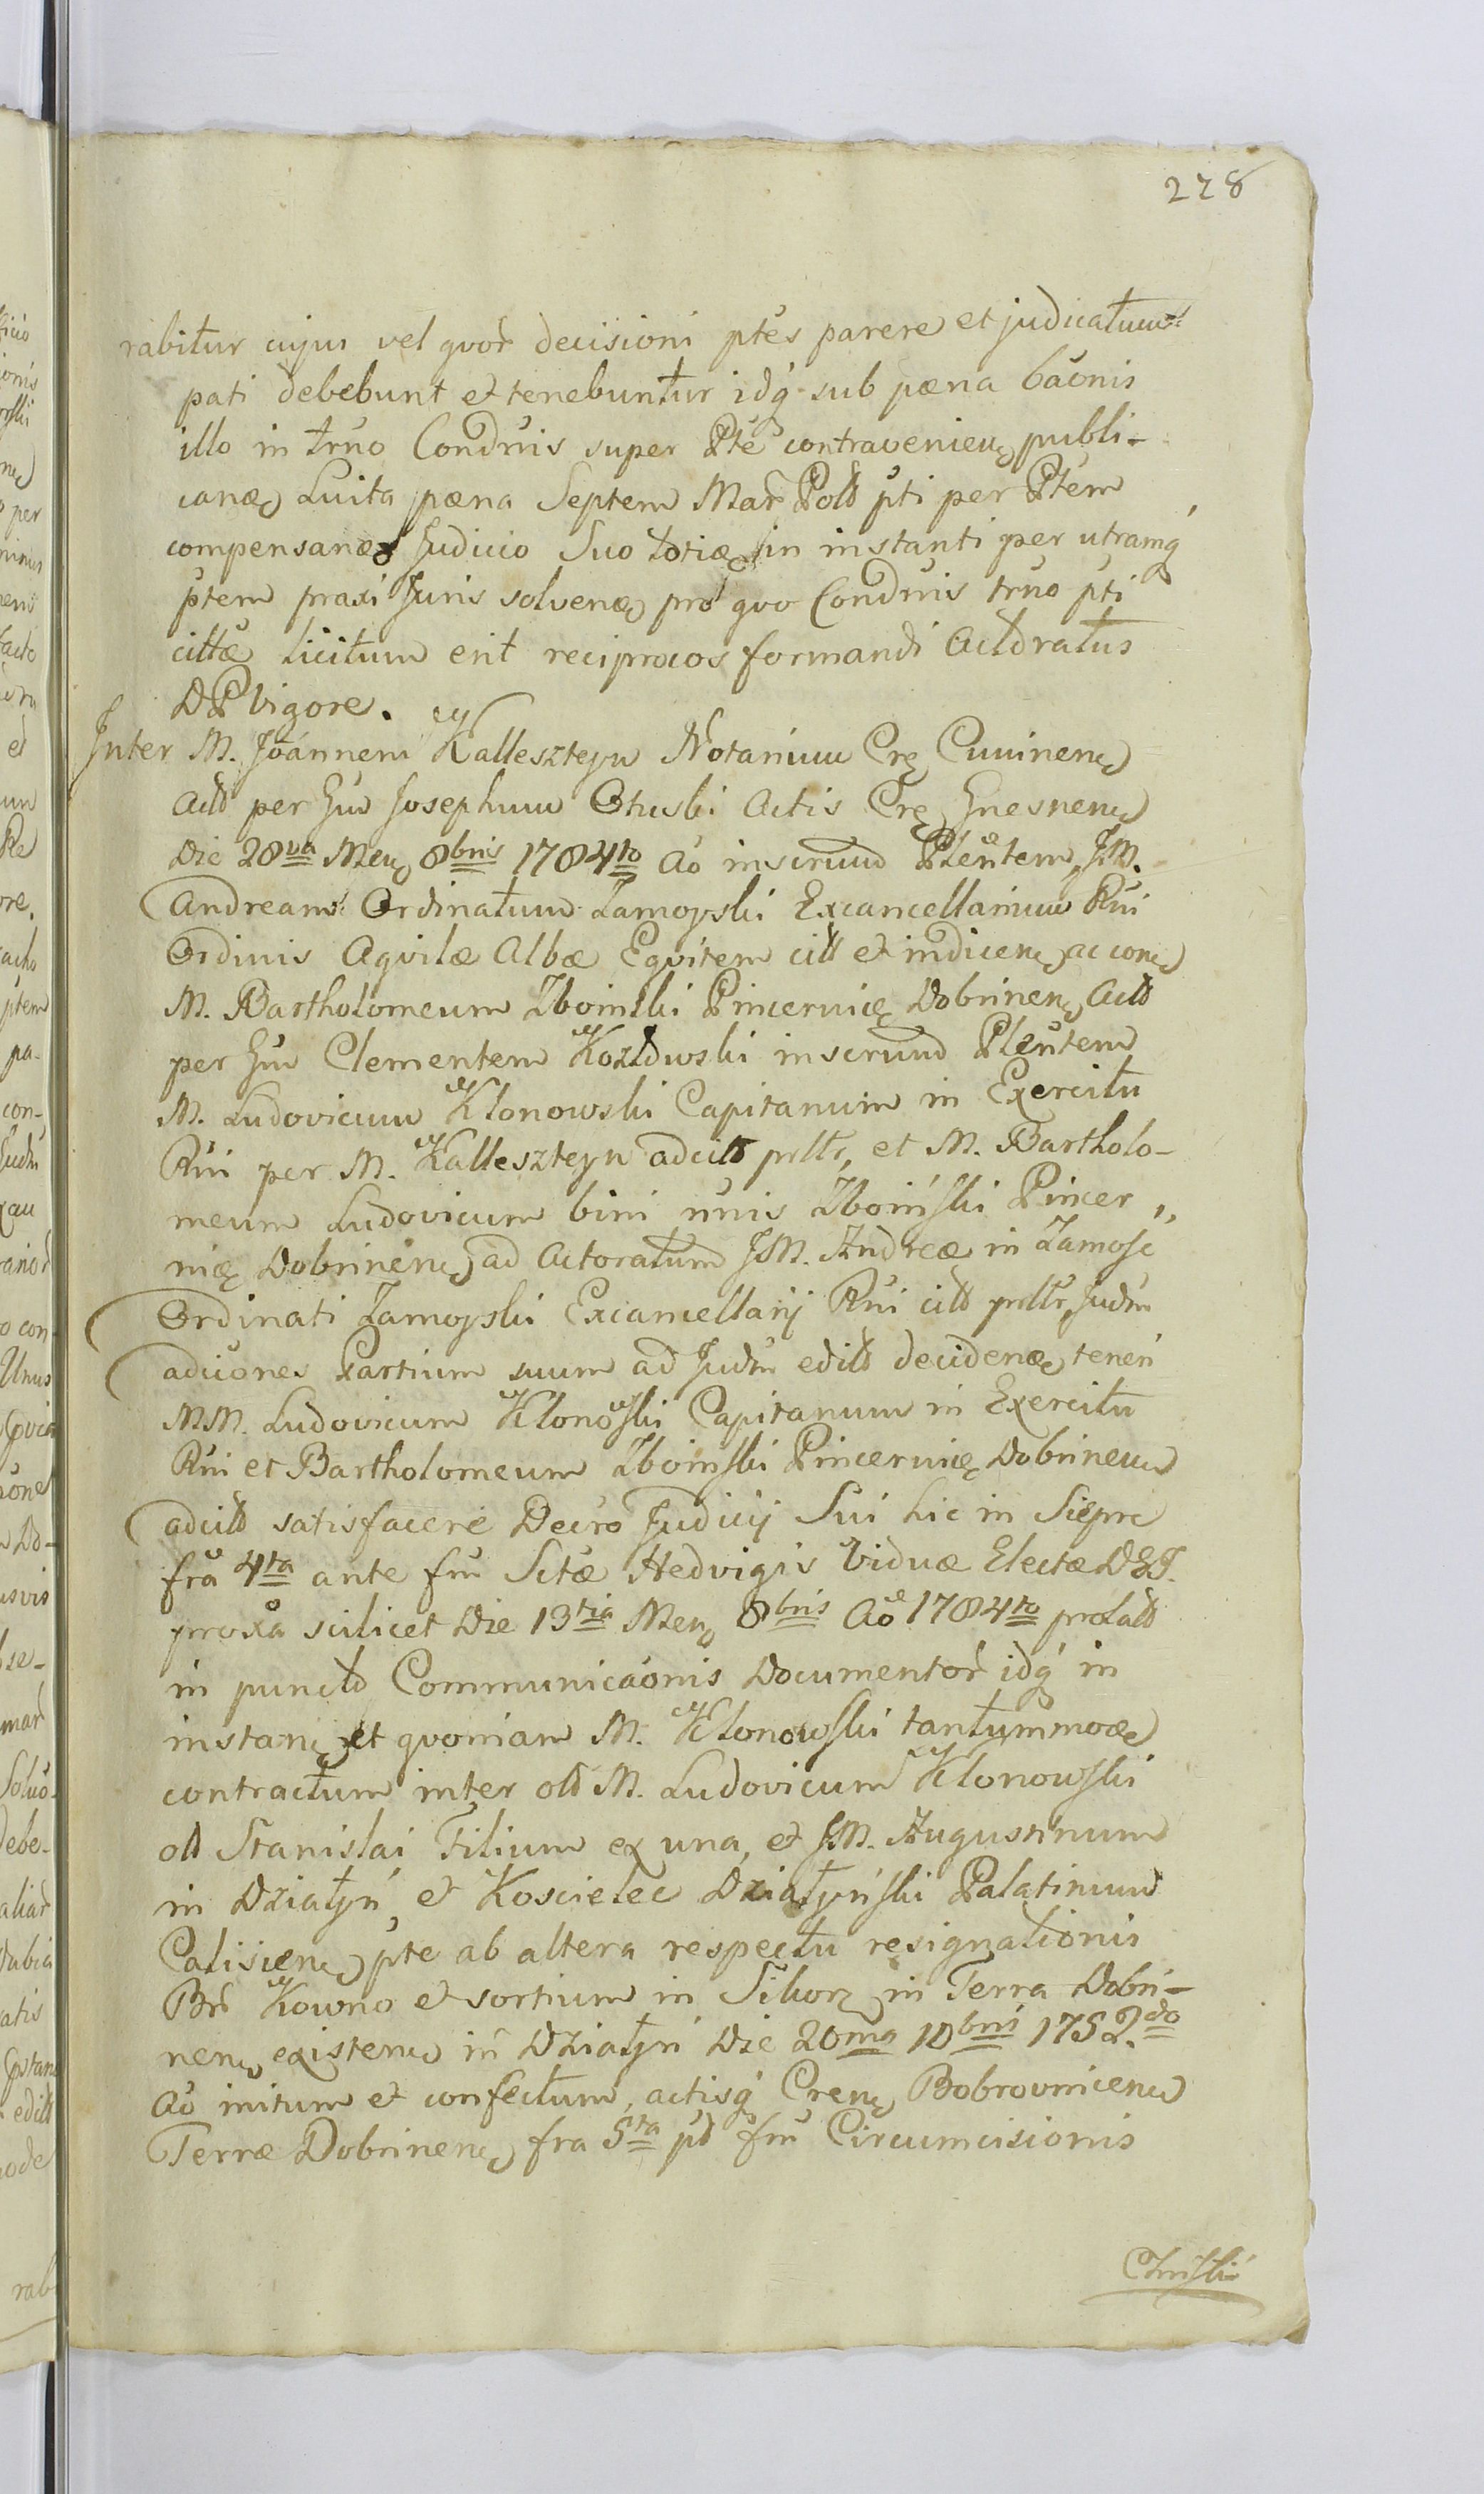 228
rabitur cujus vel quor̃ decisioni ptẽs parere et judicatum
pati debebunt et tenebuntur idq́ sub pæna bãonis
illo in trũo Conduis super Ptẽ contravenien publi-
canæ Luita pæna Septem Mar̃ Pold pti per Ptẽm
compensanæ Judicio Suo totiæ in instanti per utramq́
ptẽm praxi Juris solvenæ pro quo Conduis trũo pti
cittæ licitum erit reciprocos formandi Actoratus
DP Vigore.
Inter M. Joãnnem Kalleszteyn Notarium Crę Cuvinen
Actt per Gũ Josephum Otuski Actis Crę Gnesnen
Die 28va Men 8bris 1784to Aõ inscrum Plẽntem, J.M.
Andream Ordinatum Zamoyski Excancellarium Rñi
Ordinis Aquilæ Albæ Equitem citt et indicen ac con
M. Bartholomeum Zboinski Pincernię Dobrinen Actt
per Gũ Clementem Kozłowski inscrum Plẽntem
M. Ludovicum Klonowski Capitanum in Exercitu
Rñi per M. Kallesztejn adcitt prtt, et M. Bartholo-
meum Ludovicum bini nũis Zboiński Pincer„
nię Dobrinen ad Actoratum JM. Andreæ in Zamosc
Ordinati Zamoyski Excancellarij Rñi citt prtt Judm
adcẽones Partium suum ad Judm editt decidenæ tenen
MM. Ludovicum Klonowski Capitanum in Exercitu
Rñi et Bartholomeum Zboinski Pincernię Dobrinen
adcitt satisfacere Decro Judicij Sui hic in Sieprc
frã 4ta ante fm̃ Sctæ Hedvigis Viduæ Electæ D&T.
proxã scilicet Die 13tia Men 8bris Aõ 1784to prolatt
in puncto Communicãonis Documentor̃ idq́ in
instan et quoniam M. Klonowski tantummoæ
contractum inter olt M. Ludovicum Klonowski
olt Stanislai Filium ex una, et JM. Augustinum
in Działyń, et Koscielec Działyński Palatinum
Calisien pte ab altera respectu resignationis
Br̃ Kowno et sortium in Sikorz in Terra Dobri-
nen existen in Działyń Die 20ma 10bris 1752do
Aõ initum et confectum, actisq́ Cren Bobrovnicen
Terræ Dobrinen fra 5ta pt fm̃ Circumcisionis
Christi